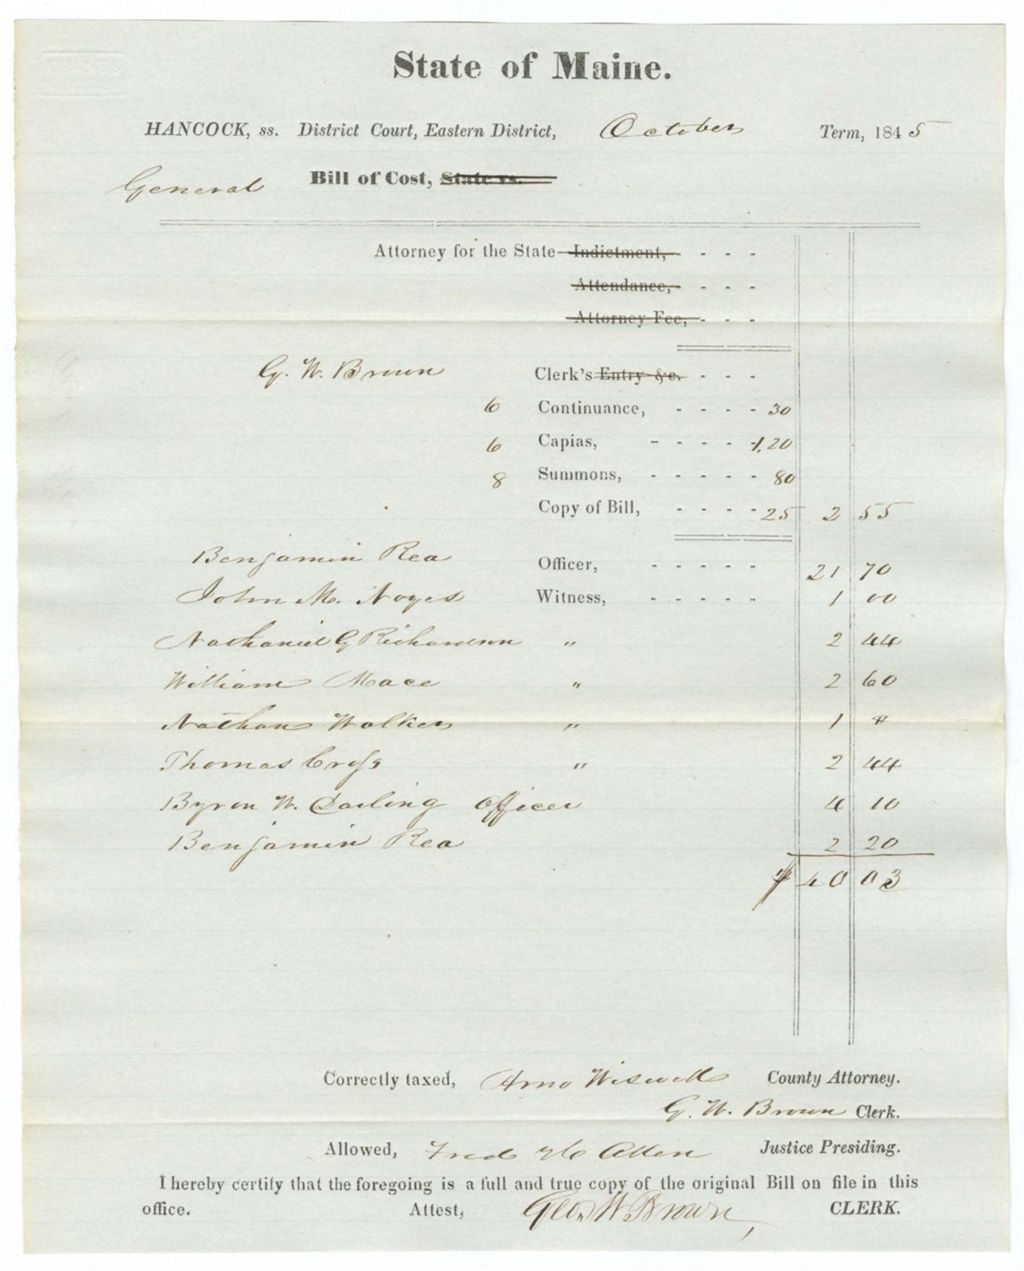 State of Maine.
HANCOCK, ss. District Court, Eastern District, October Term, 1845
General Bill of Cost, State vs.
Attorney for the State Indictment, - - -
Attendance, - - -
Attorney Fee, - - -
G. W. Brown Clerk's Entry &c. - - -
6 Continuance, - - - - 30
6 Capias, - - - - 1,20
8 Summons, - - - - - 80
Copy of Bill, - - - - 25 2 55
Benjamin Rea Officer, - - - - - 21 70
John M. Noyes Witness, - - - - - 1 00
Nathaniel G Richardson " 2 44
William Mace " 2 60
Nathan Walker " 1
Thomas Cross " 2 44
Byron W. Darling Officer 4 10
Benjamin Rea 2 20
$ 40 03
Correctly taxed, Arno Wiswell County Attorney.
G. W. Brown Clerk.
Allowed, Fred H Allen Justice Presiding.
I hereby certify that the foregoing is a full and true copy of the original Bill on file in this
office. Attest, Geo. W. Brown, CLERK.